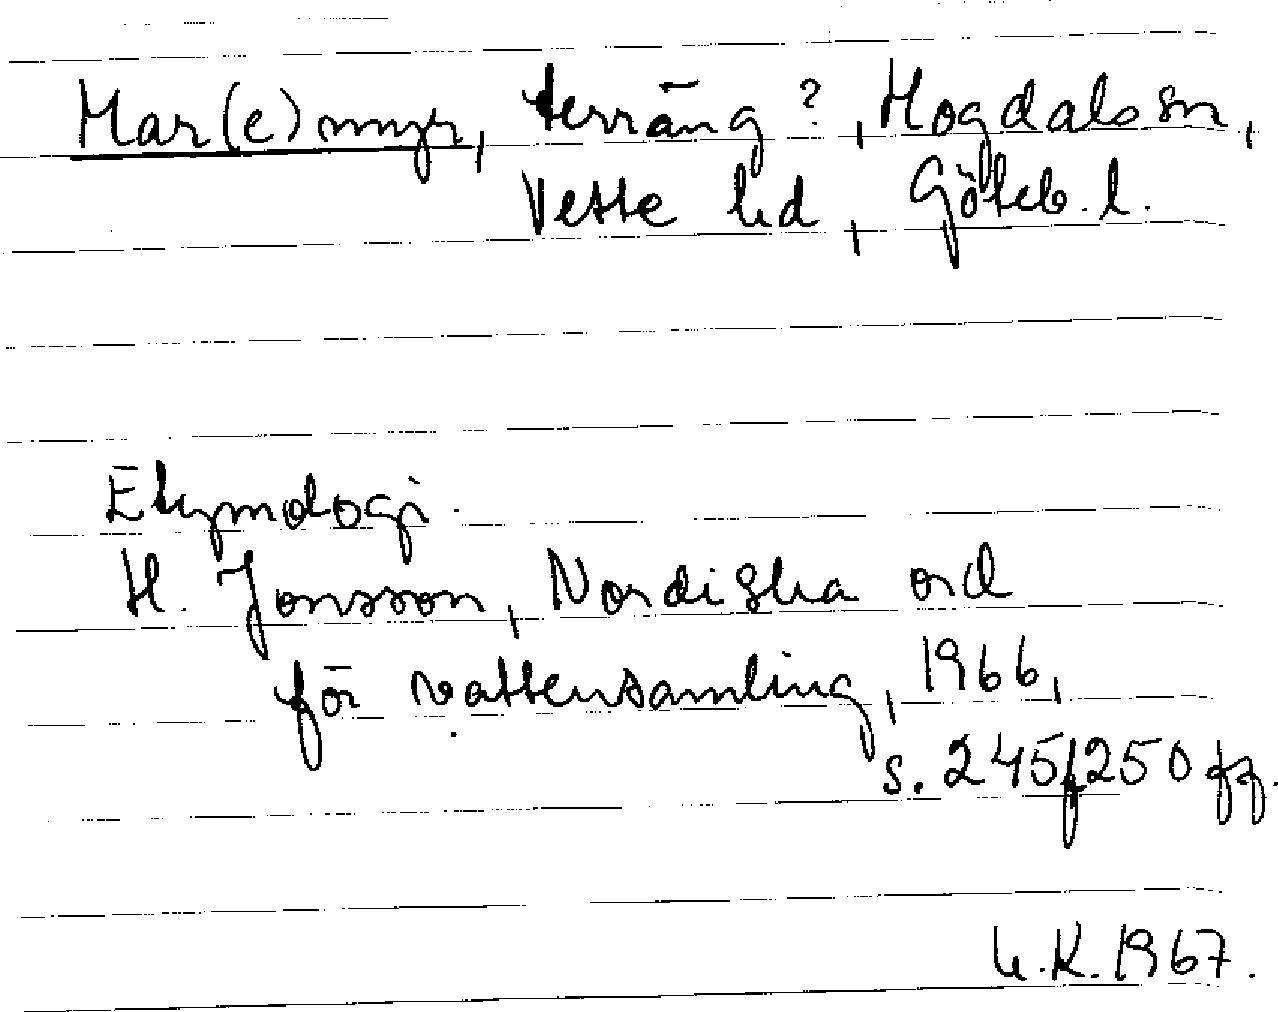 Mar(e)myr, terräng?, Hogdals sn,
Vette hd, Göteb. l.
Etymologi.
H. Jonsson, Nordiska ord
för vattensamling, 1966,
s. 245f, 250 ff.
K. 1967.